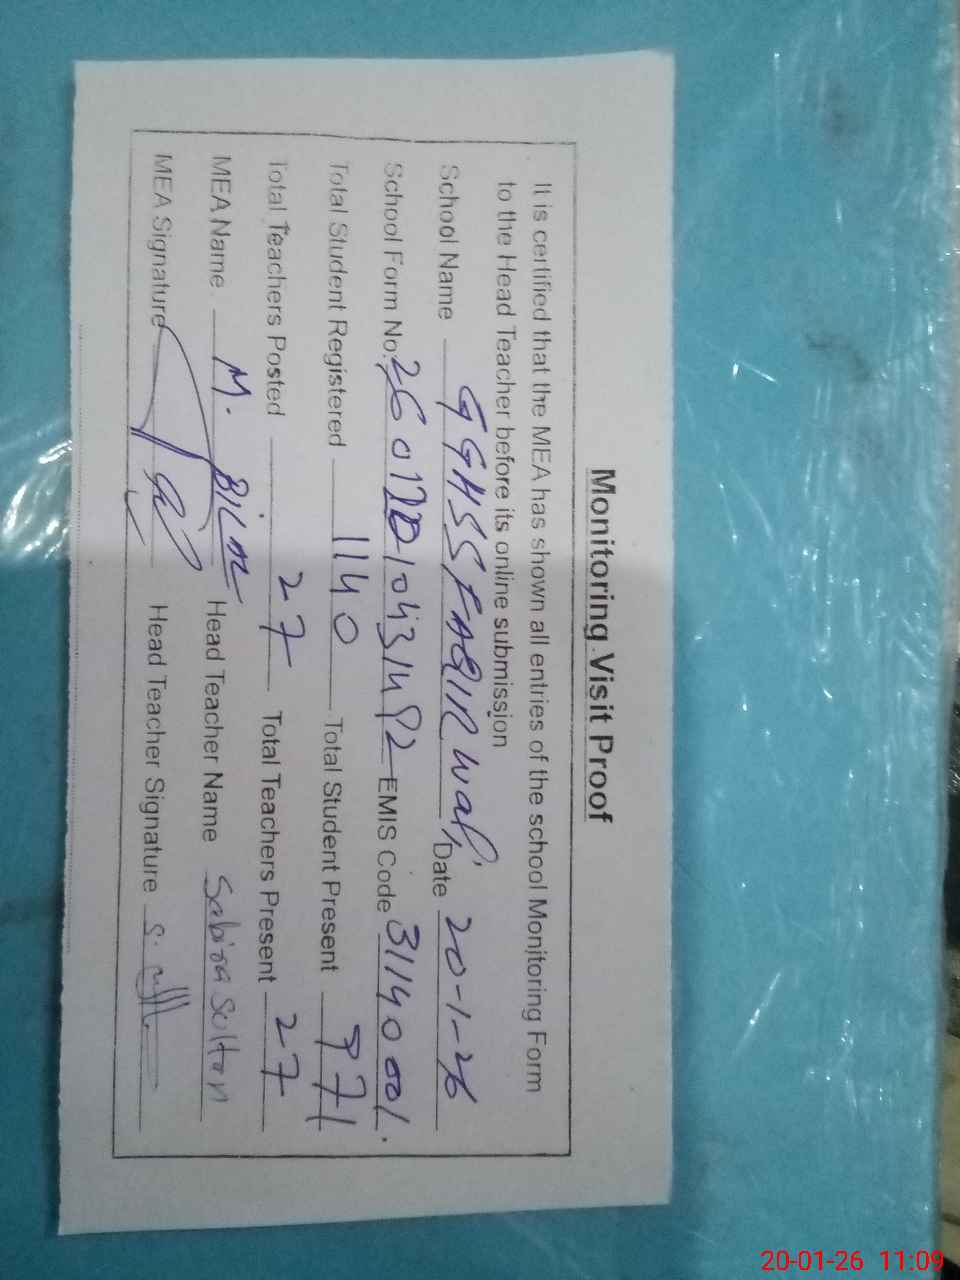 Monitoring Visit Proof
It is certified that the MEA has shown all entries of the school Monitoring Form
to the Head Teacher before its online submission
School Name GGHSS FAQIR Wali, Date 20-1-26
School Form No. EMIS Code 31140001.
Total Student Registered 1140 Total Student Present 971
Total Teachers Posted 27 Total Teachers Present 27
MEA Name M. Head Teacher Name Sabira Sultan
MEA Signature Head Teacher Signature
20-01-26 11:09